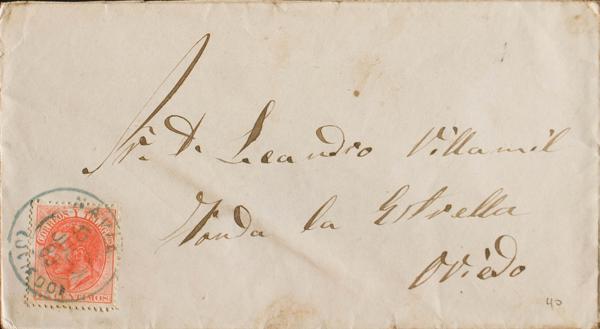 Sr. D. Leandro Villamil
Fonda la Estrella
Oviedo
CORREOS Y TELEGS
NAVIA
40